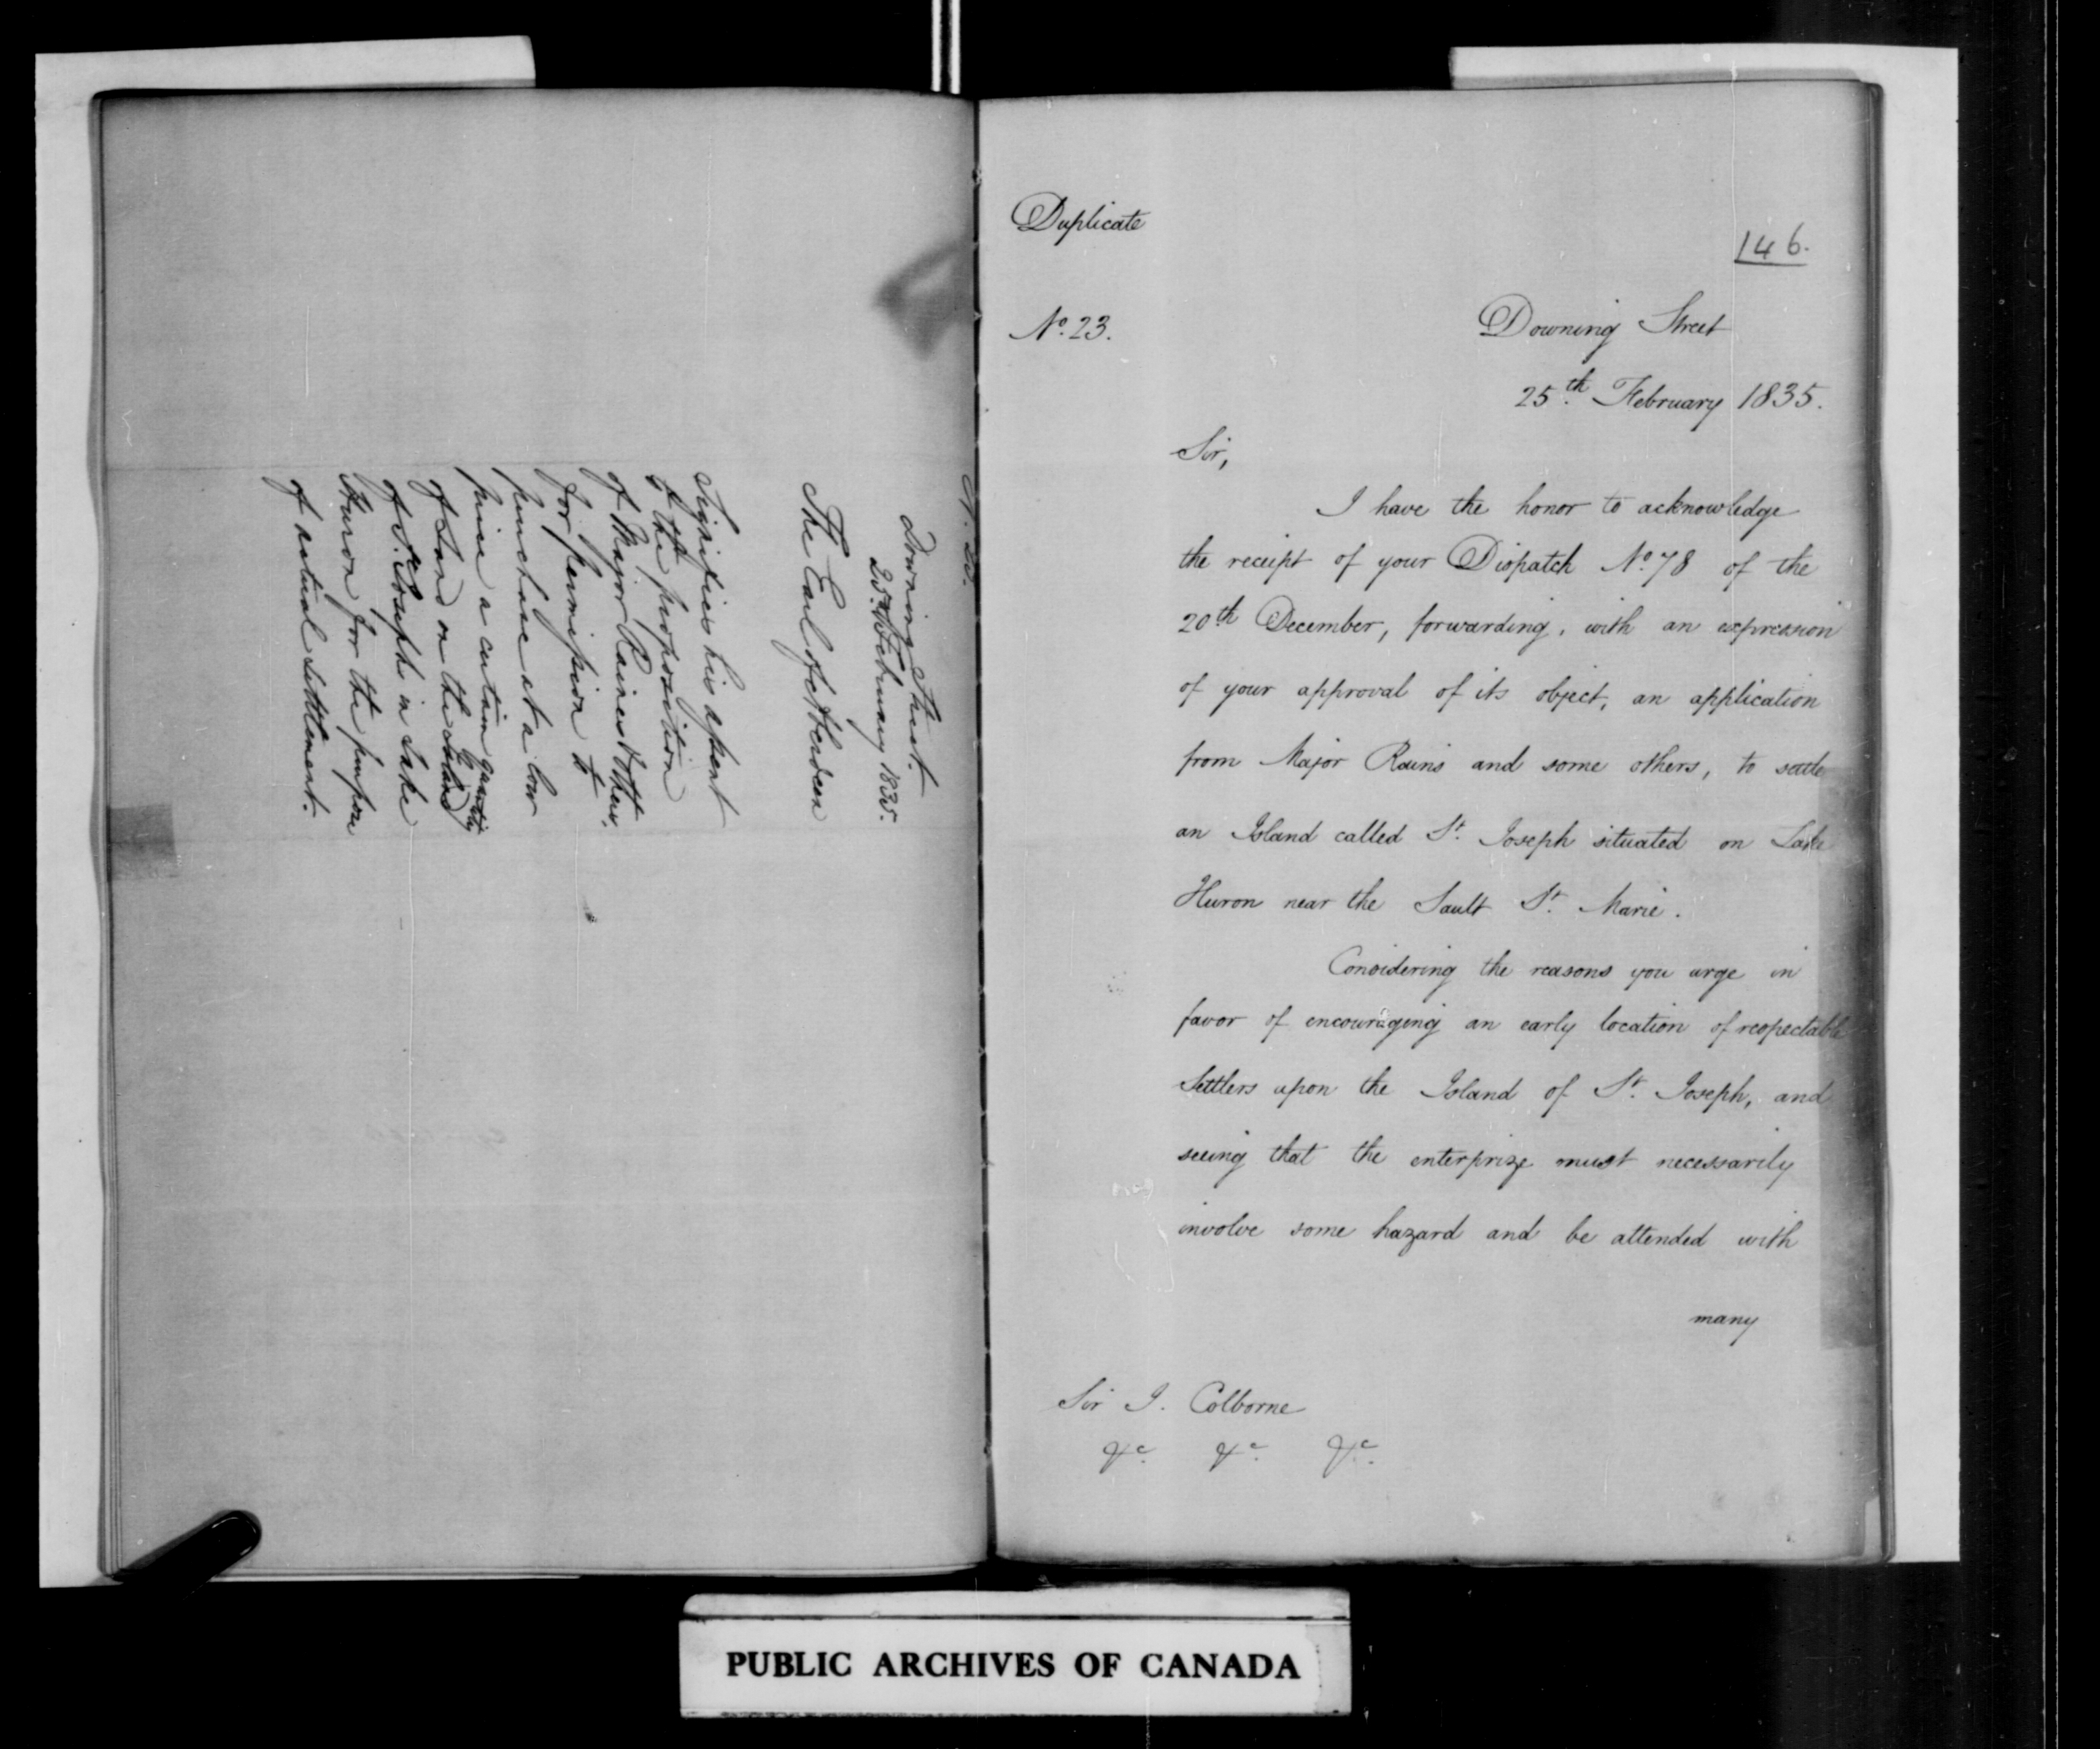 Downing Street.
25th February 1835.
The Earl of Aberdeen
Signifies his assent
of the proposition
of Major Raines & others,
for permission to
purchase at a low
price a certain quantity
of Land on the Island
of St. Joseph in Lake
Huron for the purpose
of actual settlement.
Duplicate
146.
No. 23.
Downing Street
25th. February 1835.
Sir,
I have the honor to acknowledge
the receipt of your Dispatch No. 78 of the
20th December, forwarding, with an expression
of your approval of its object, an application
from Major Rains and some others, to settle
an Island called St. Joseph situated on Lake
Huron near the Sault St. Marie.
Considering the reasons you urge in
favor of encouraging an early location of respectable
Settlers upon the Island of St. Joseph, and
seeing that the enterprize must necessarily
involve some hazard and be attended with
many
Sir J. Colborne
&c. &c. &c.
PUBLIC ARCHIVES OF CANADA